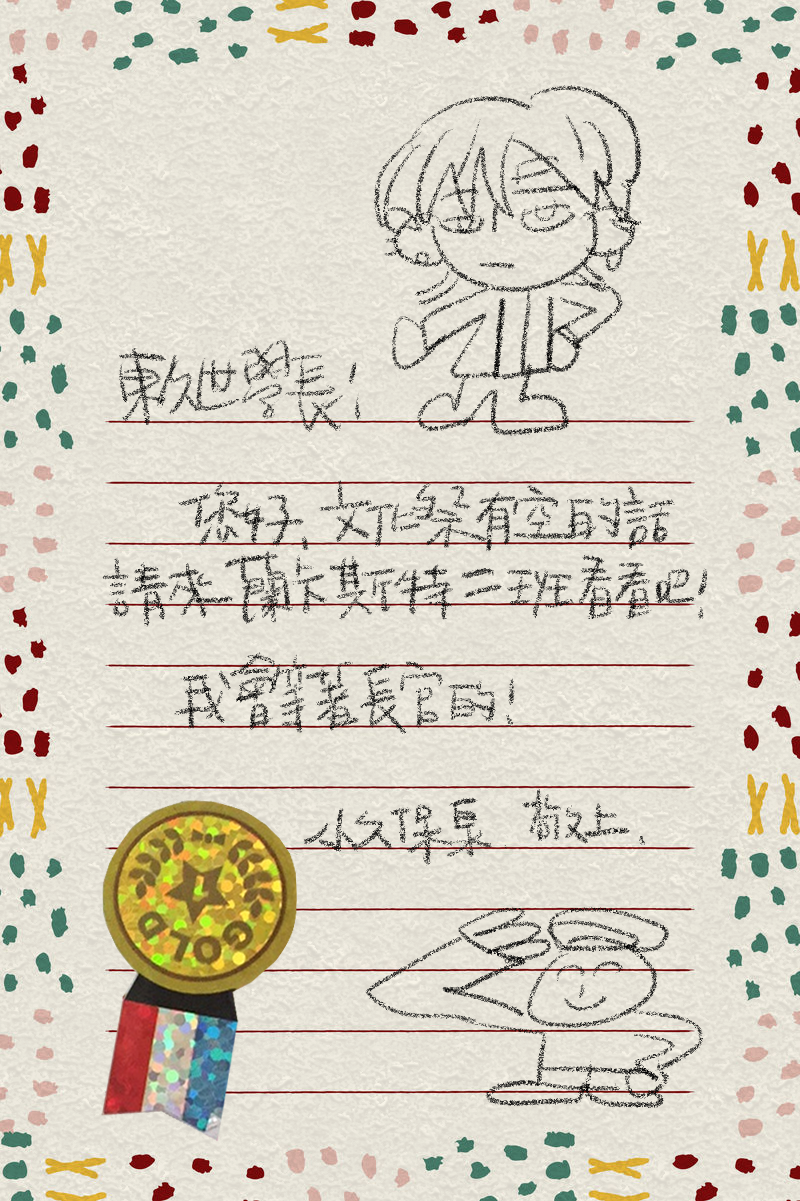 軟世學長!
您好,文化祭有空的話
請來蘭卡斯特二班看看吧!
我會等著長官的!
小久保杲 敬上.
GOLD